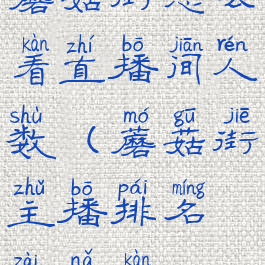 蘑菇街怎么
kàn zhí bō jiān rén
看直播间人
shù mó gū jiē
数(蘑菇街
zhǔ bō pái míng
主播排名
zài nǎ kàn